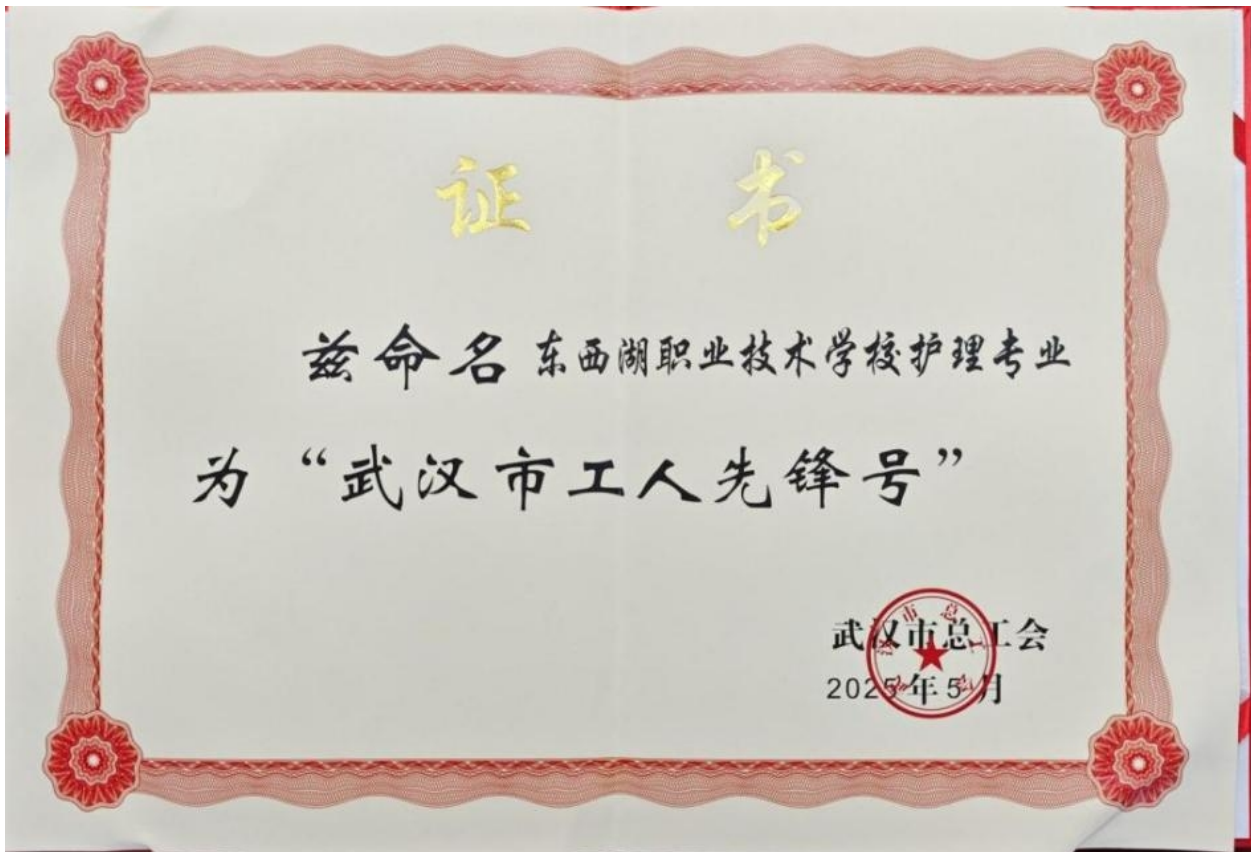 证 书
兹命名 东西湖职业技术学校护理专业
为“武汉市工人先锋号”
武汉市总工会
2025年5月
武汉市总工会